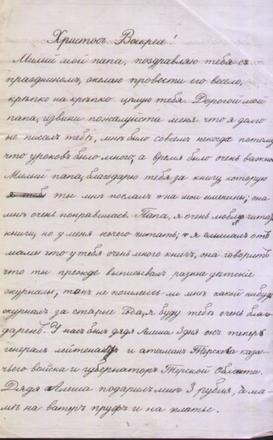 Христосъ Воскресе!
Милый мой папа, поздравляю тебя съ
праздникомъ, желаю провести его весело,
крѣпко на крѣпко цѣлую тебя. Дорогой мой
папа, извини пожалуйста меня что я долго
не писалъ тебѣ, мнѣ было совсѣмъ некогда потому
что уроковъ было много, а время было очень важное
Милый папа, благодарю тебя за книгу которую
ты мнѣ послалъ на мои именины; она
мнѣ очень понравилась. Папа, я очень люблю читать
книги, но у меня нечего читать; я слышалъ отъ
мамы что у тебя очень много книгъ, она говоритъ
что ты прежде выписывалъ разные дѣтские
журналы, такъ не пошлешь ли мнѣ какой нибудь
журналъ за старые года, я буду тебѣ очень благо-
даренъ. У насъ былъ дядя Алеша 3 дня онъ теперь
генералъ лейтенантъ и атаманъ Терскаго казачь-
яго войска и губернаторъ Терской Области.
Дядя Алеша подарилъ мнѣ 3 рубля, а ма-
мѣ на и на платье.